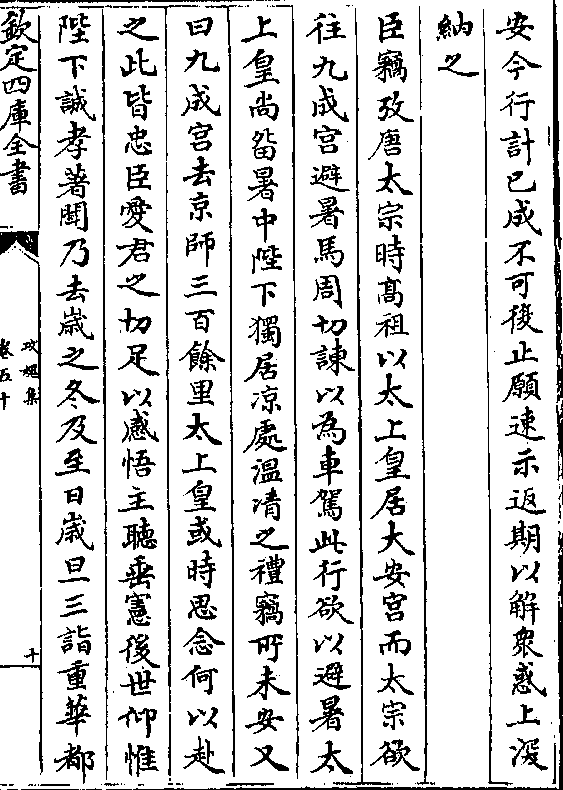 安今行計已成不可復止願速示返期以解衆惑上深
納之
臣竊攷唐太宗時髙祖以太上皇居大安宫而太宗欲
往九成宫避暑馬周切諫以為車駕此行欲以避暑太
上皇尚留暑中陛下獨居凉處溫凊之禮竊所未安又
曰九成宫去京師三百餘里太上皇或時思念何以赴
之此皆忠臣愛君之切足以感悟主聽垂憲後世仰惟
陛下誠孝著聞乃去歳之冬及至日歳旦三詣重華都
欽定四庫全書
攻媿集
卷五十
十